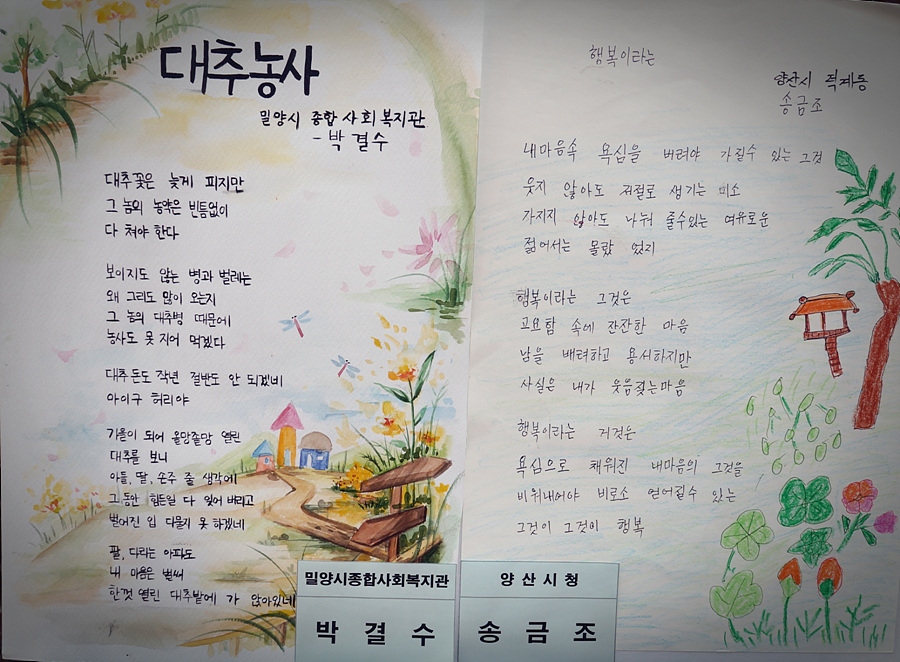 대추농사
밀양시 종합사회복지관
- 박결수
대추꽃은 늦게 피지만
그 놈의 농약은 빈틈없이
다 쳐야 한다
보이지도 않는 병과 벌레는
왜 그리도 많이 오는지
그 놈의 대추병 때문에
농사도 못 지어 먹겠다
대추 돈도 작년 절반도 안 되겠네
아이구 허리야
가을이 되어 올망졸망 열린
대추를 보니
아들, 딸, 손주 줄 생각에
그 동안 힘든일 다 잊어 버리고
벌어진 입 다물지 못 하겠네
팔, 다리는 아파도
내 마음은 벌써
한껏 열린 대추밭에 가 앉아있네
밀양시종합사회복지관
박 결 수
행복이라는
양산시 덕계동
송금조
내마음속 욕심을 버려야 가질수 있는 그것
웃지 않아도 저절로 생기는 미소
가지지 않아도 나눠 줄수있는 여유로운
젊어서는 몰랐 었지
행복이라는 그것은
고요함 속에 잔잔한 마음
남을 배려하고 용서하지만
사실은 내가 웃음짖는마음
행복이라는 거것은
욕심으로 채워진 내마음의 그것을
비워내어야 비로소 얻어질수 있는
그것이 그것이 행복
양 산 시 청
송 금 조